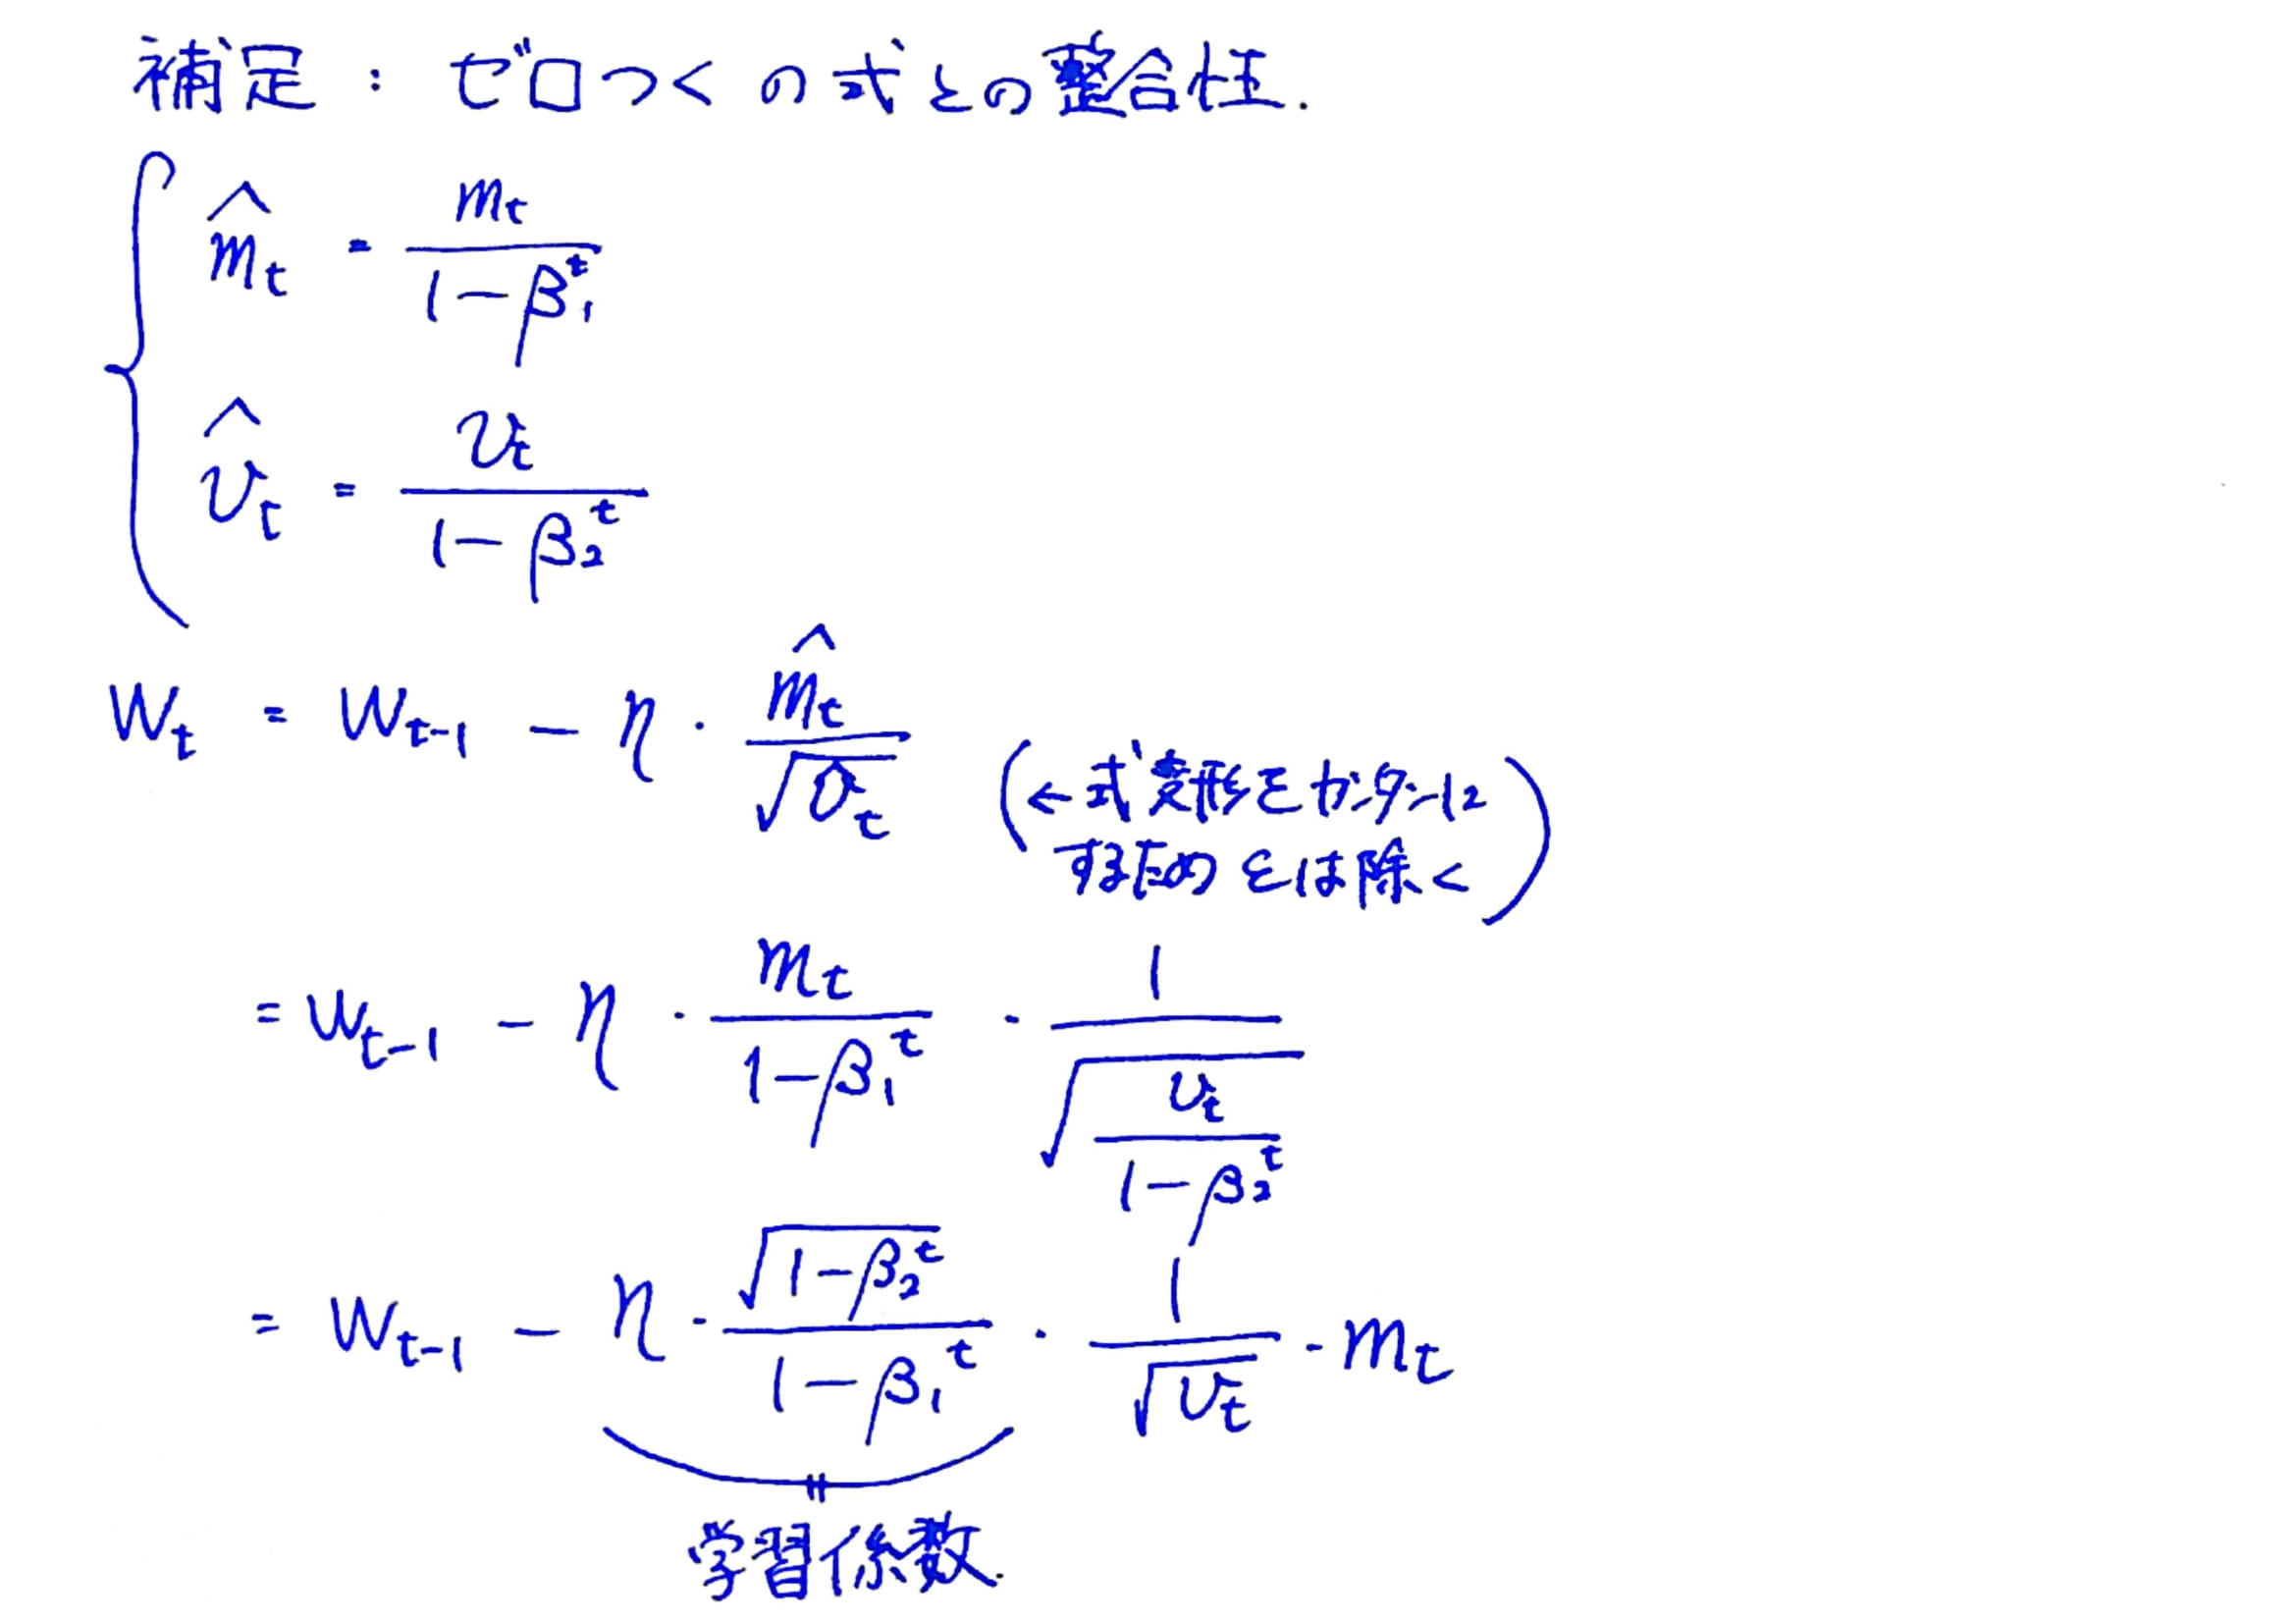 補足：ゼロつくの式との整合性.
m̂_t = m_t / (1-β_1^t)
v̂_t = v_t / (1-β_2^t)
W_t = W_{t-1} - η · m̂_t / √v̂_t
(←式変形をカンタンに
するため εは除く)
= W_{t-1} - η · m_t / (1-β_1^t) · 1 / √(v_t / (1-β_2^t))
= W_{t-1} - η · √(1-β_2^t) / (1-β_1^t) · 1 / √v_t · m_t
学習係数.